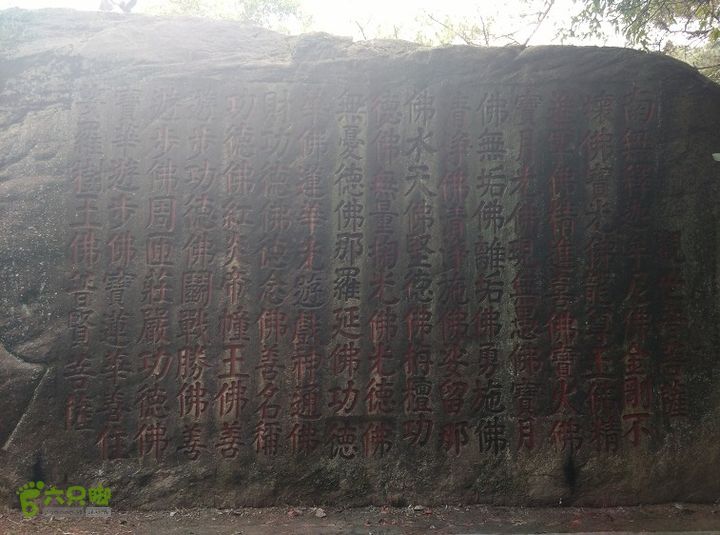 南無釋迦牟尼佛金剛不
壞佛寶光佛龍尊王佛精
進軍佛精進喜佛寶火佛
寶月光佛現無愚佛寶月
佛無垢佛離垢佛勇施佛
清淨佛清淨施佛娑留那
佛水天佛堅德佛栴檀功
德佛無量掬光佛光德佛
無憂德佛那羅延佛功德
華佛蓮華光遊戲神通佛
財功德佛德念佛善名稱
功德佛紅炎帝幢王佛善
遊步功德佛鬭戰勝佛善
遊步佛周匝莊嚴功德佛
寶華遊步佛寶蓮華善住
娑羅樹王佛普賢菩薩
六只脚